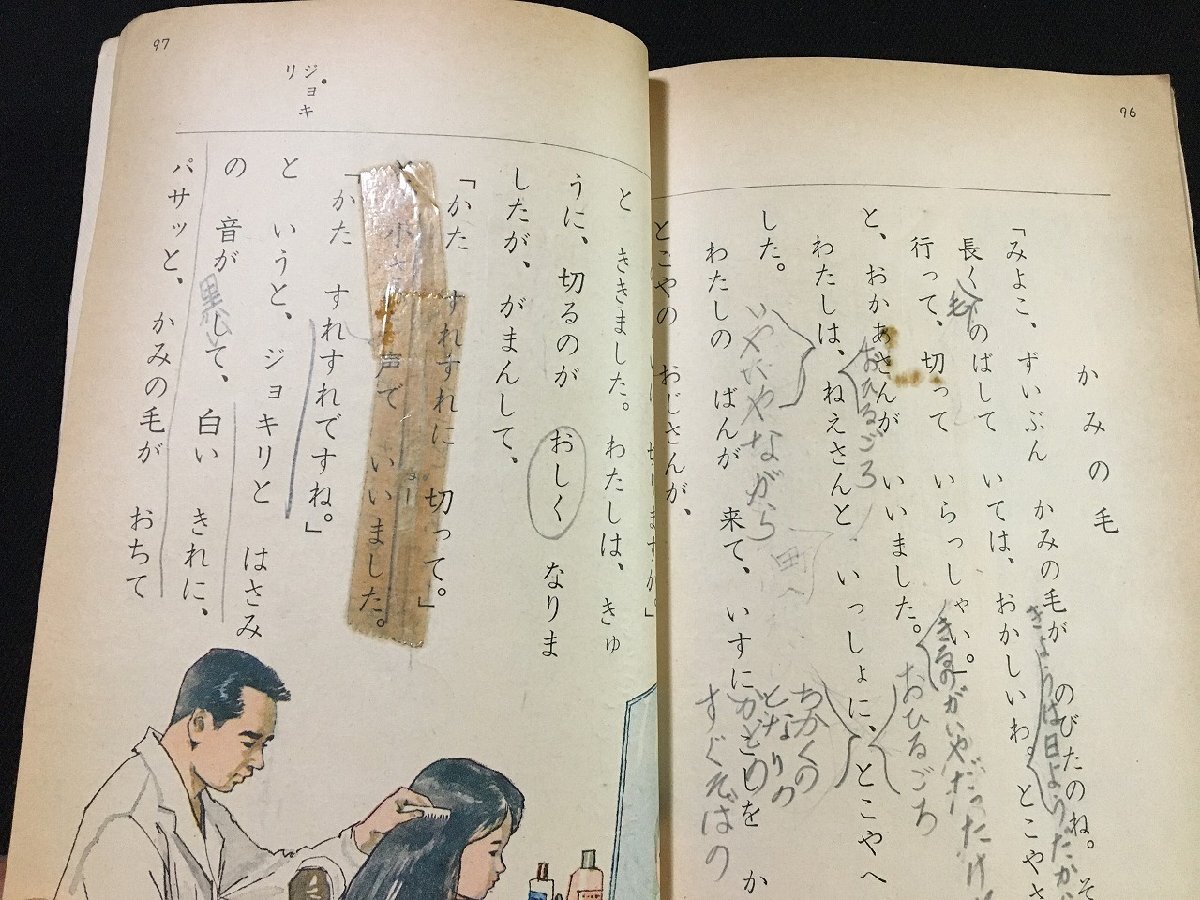 96
かみの毛
「みよこ、ずいぶん かみの毛が のびたのね。そ
長く のばして いては、おかしいわ。とこやさ
行って、切って いらっしゃい。」
と、おかあさんが いいました。
わたしは、ねえさんと いっしょに、とこやへ
した。
わたしの ばんが 来て、いすに こしを か
毛
きょうは日ようだから
きるのがいやだったけ
おひるごろ
おひるごろ
いやいやながら
ちかくの
となりの
かどの
すぐそばの
97
ジョキ
リ
とこやの おじさんが、
と ききました。わたしは、きゅ
うに、切るのが おしく なりま
したが、がまんして、
「かた すれすれに 切って。」
と 小さな 声で いいました。
「かた すれすれですね。」
と いうと、ジョキリと はさみ
の 音が して、白い きれに、
黒い
パサッと、かみの毛が おちて